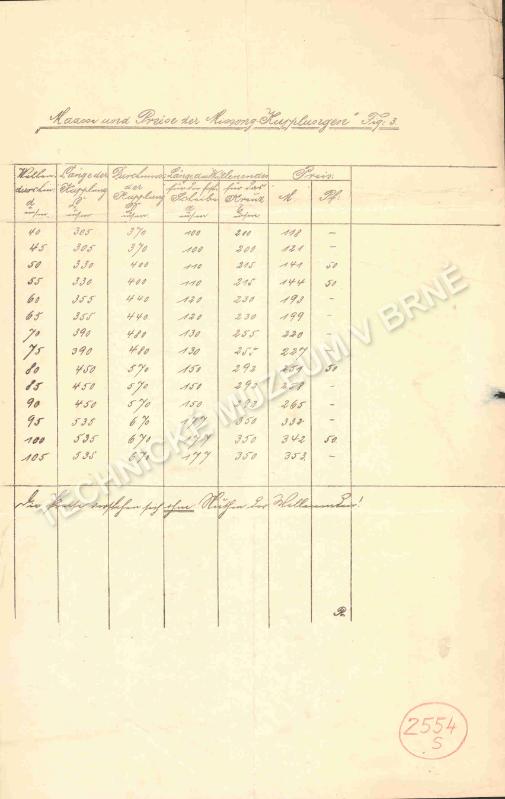 „Maasse und Preise der Missong-Kupplungen" Fig: 3.
Wellen- Länge der Durchmes. Länge d. Wellenendes Preis:
durchm. Kupplung der für die feste für das M. Pf.
d Kupplung Scheibe Kreuz
40 305 370 100 200 118 –
45 305 370 100 200 121 –
50 330 400 110 215 141 50
55 330 400 110 215 144 50
60 355 440 120 230 193 –
65 355 440 120 230 199 –
70 390 480 130 255 220 –
75 390 480 130 255 227 –
80 450 570 150 292 251 50
85 450 570 150 292 258 –
90 450 570 150 292 265 –
95 535 670 177 350 332 –
100 535 670 177 350 342 50
105 535 670 177 350 353 –
Die Preise verstehen sich ohne Nuthen der Wellenenden!
R.
TECHNICKÉ MUZEUM V BRNĚ
2554
S